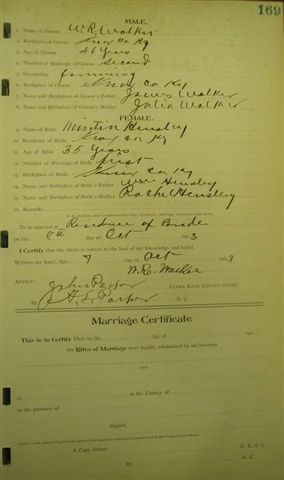 169
MALE.
1. Name of Groom W. R. Walker
2. Residence of Groom Knox Co Ky
3. Age of Groom 56 Years
4. Number of Marriage of Groom Second
5. Occupation farming
6. Birthplace of Groom Knox Co Ky
7. Name and Birthplace of Groom's Father James Walker
8. Name and Birthplace of Groom's Mother Julia Walker
FEMALE.
9. Name of Bride Hensley
10. Residence of Bride Knox Co Ky
11. Age of Bride 35 Years
12. Number of Marriage of Bride first
13. Birthplace of Bride Knox Co Ky
14. Name and Birthplace of Bride's Father Wm Hensley
15. Name and Birthplace of Bride's Mother Rachel Hensley
16. Remarks
To be married at Residence of Bride
on the 8th day of Oct 1903
I Certify that the above is correct to the best of my knowledge and belief.
Witness my hand, this 7 day of Oct 1903
W. R. Walker
Attest:
John Parker Clerk, Knox County Court.
By Parker D. C.
Marriage Certificate
This is to Certify That on the day of 190
the Rites of Marriage were legally solemnized by me between
AND
at in the County of
in the presence of
Signed,
A Copy Attest: C. K. C. C.
By D. C.